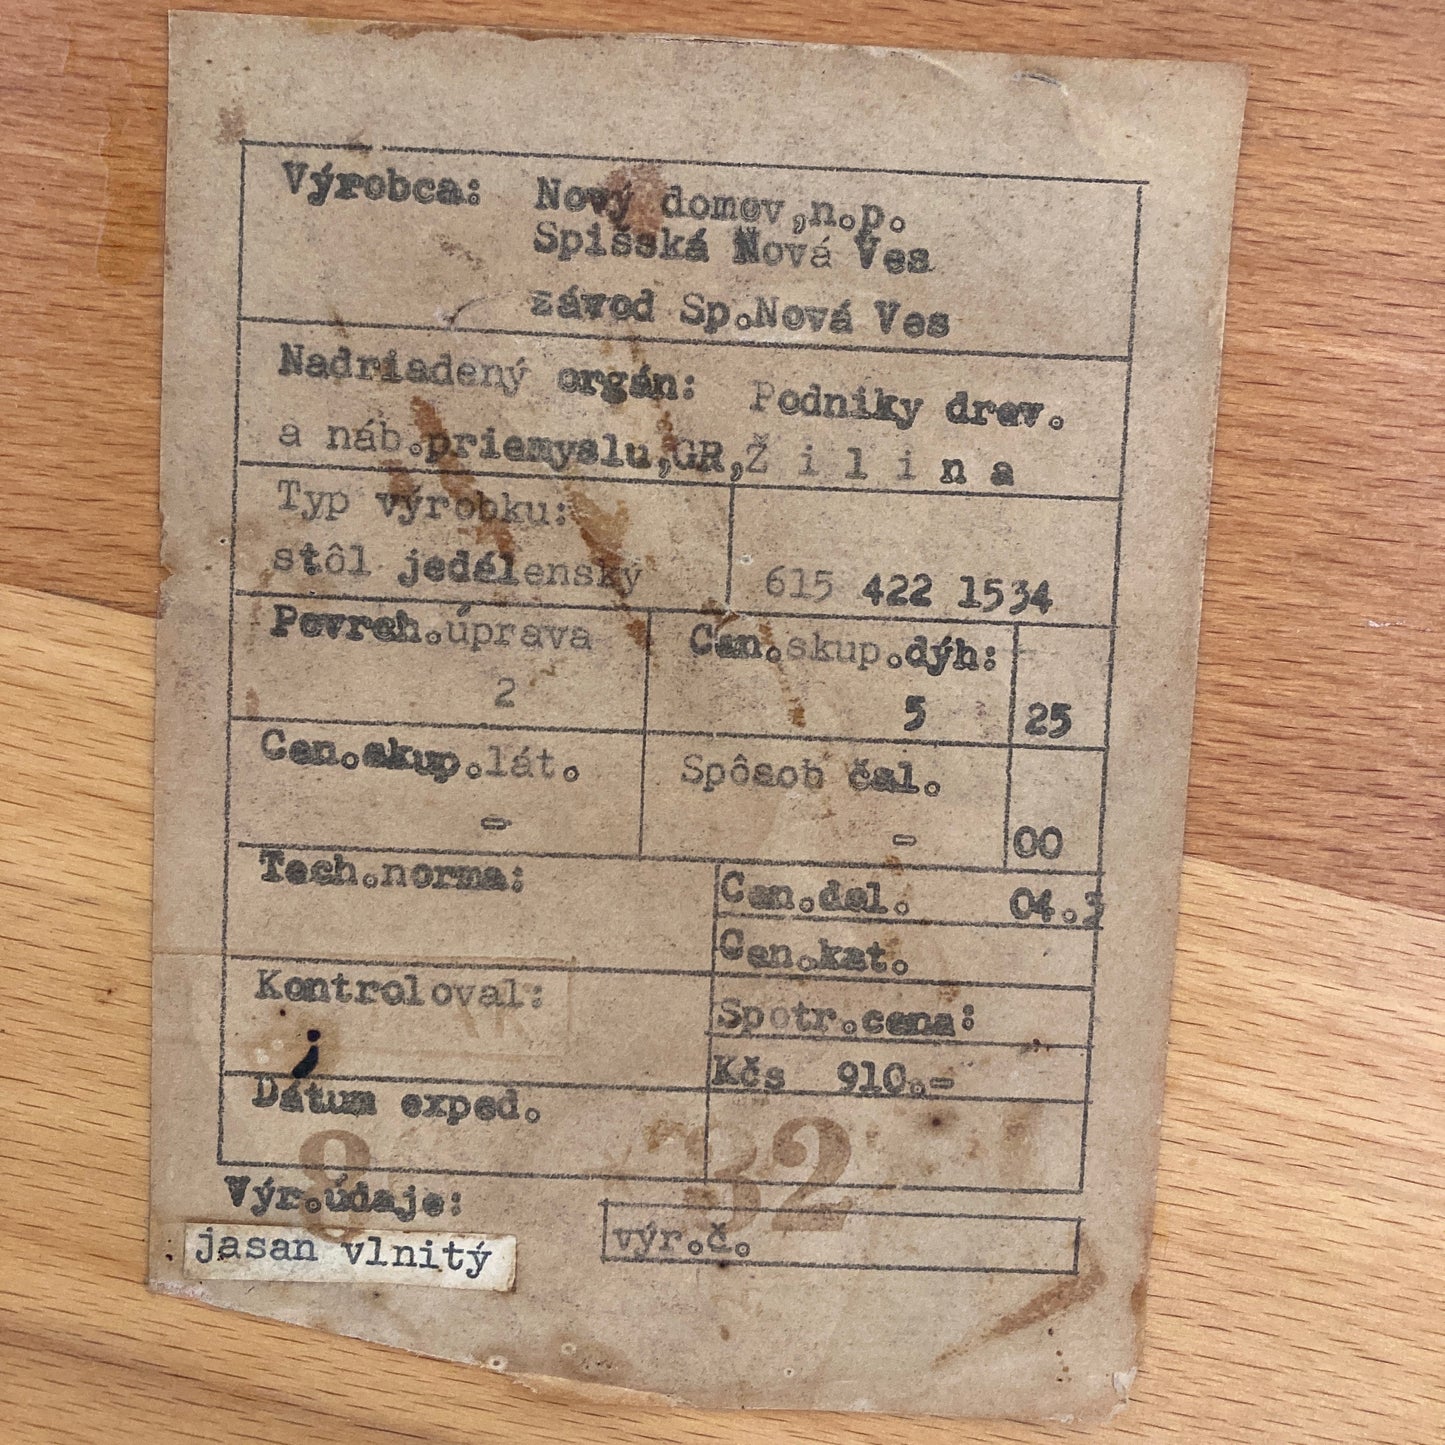 Výrobca: Nový domov,n.p.
Spišská Nová Ves
závod Sp.Nová Ves
Nadriadený orgán: Podniky drev.
a náb.priemyslu,GR,Ž i l i n a
Typ výrobku:
stôl jedálenský 615 422 1534
Povrch.úprava Cen.skup.dýh:
2 5 25
Cen.skup.lát. Spôsob čal.
- - 00
Tech.norma: Cen.del. 04.3
Cen.kat.
Kontroloval: Spotr.cena:
Kčs 910.-
Dátum exped.
8 32
Výr.údaje:
výr.č.
jasan vlnitý